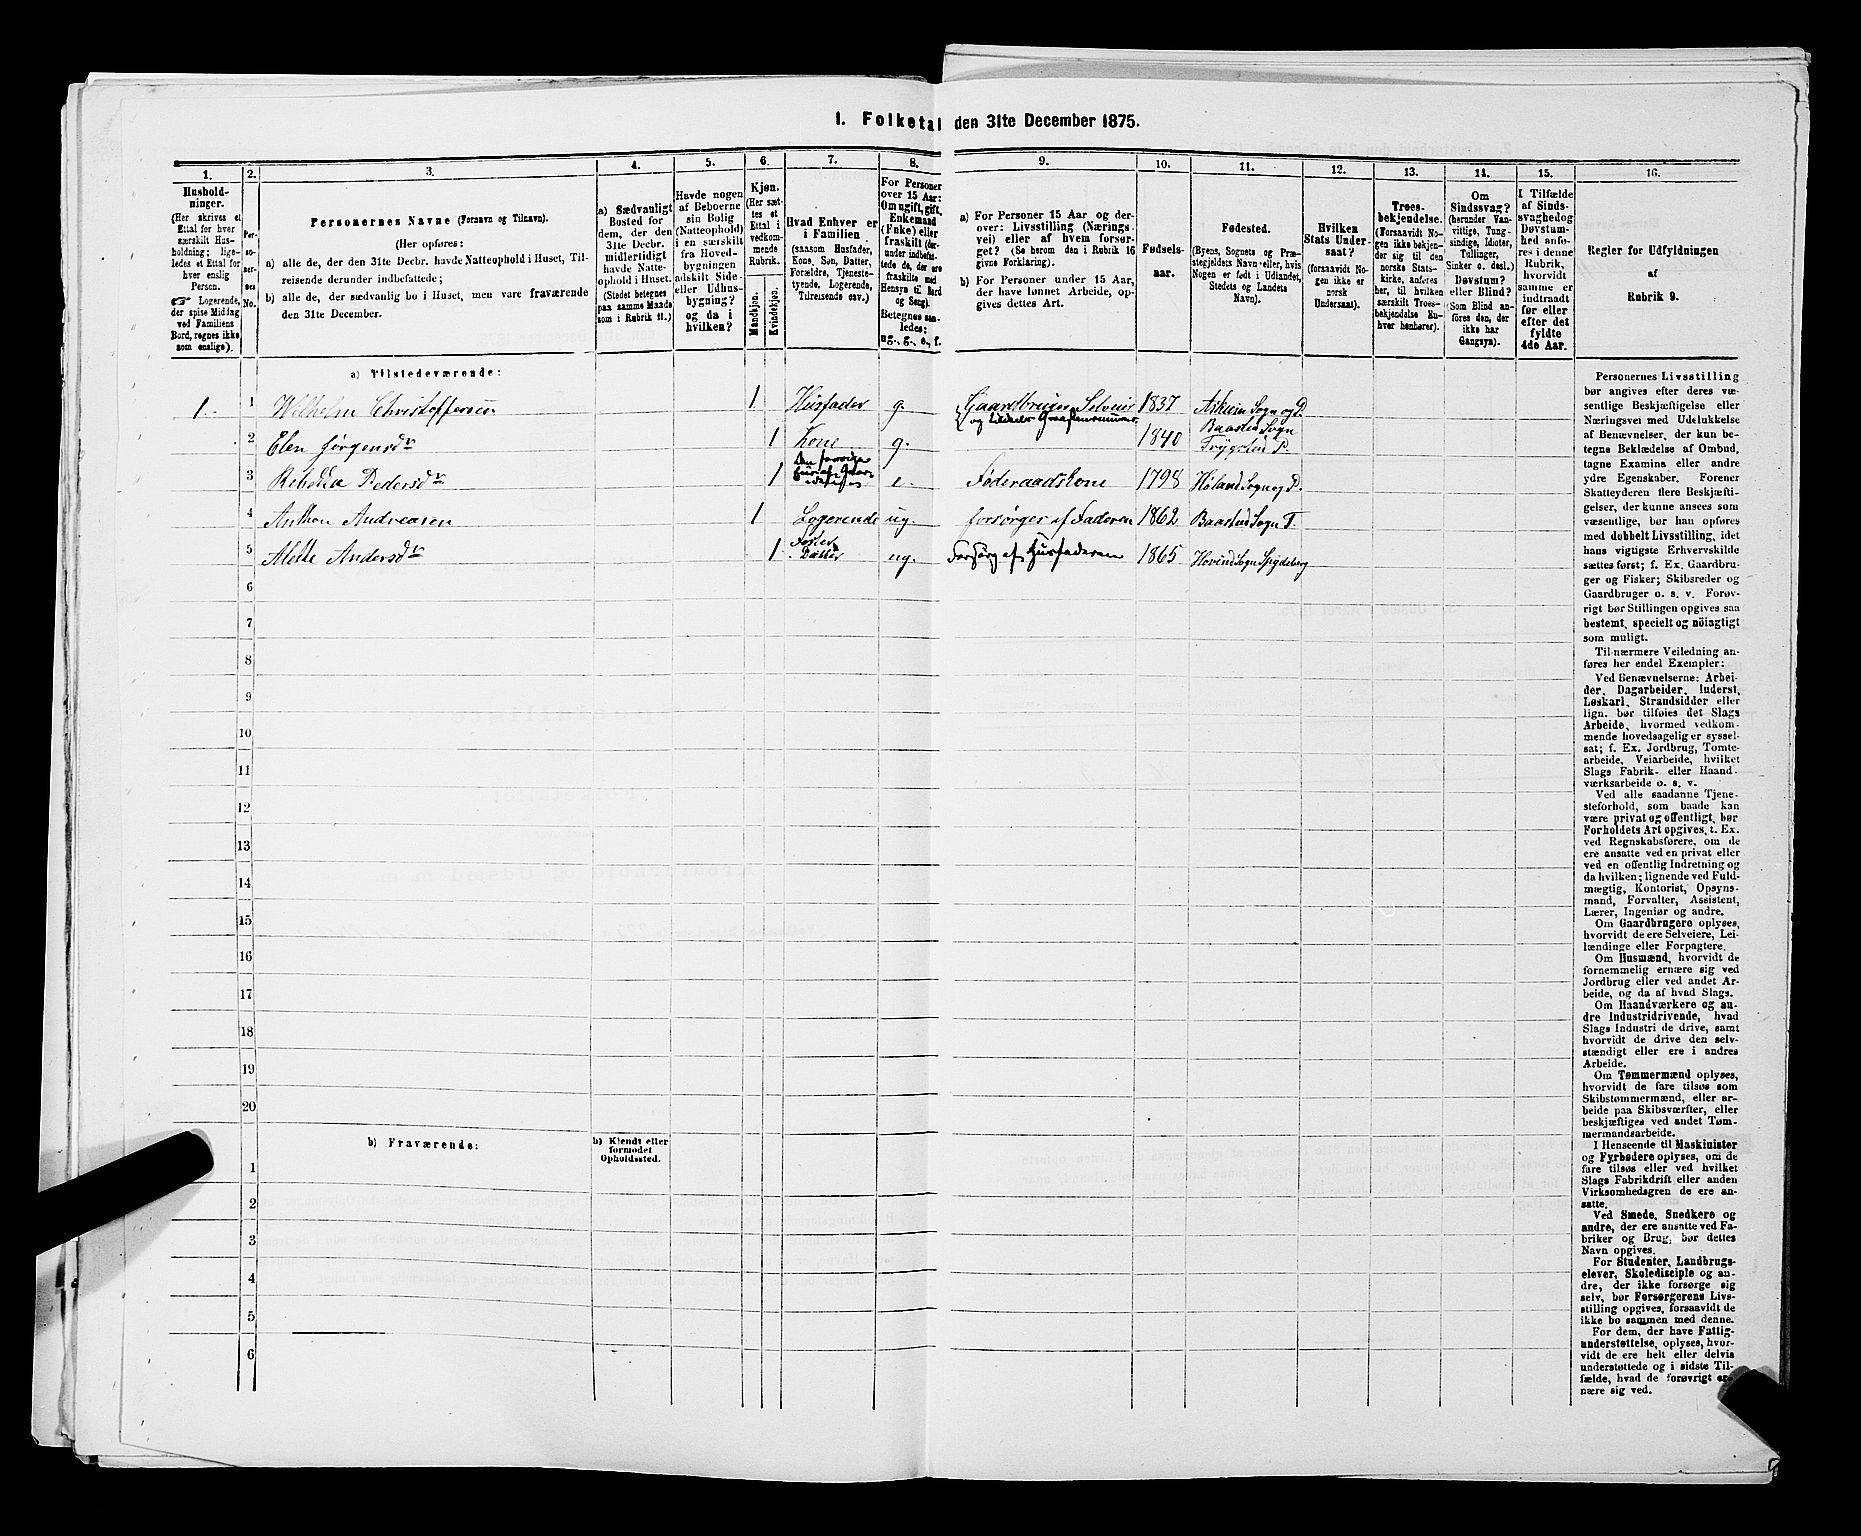 1. Folketal den 31te December 1875.
1. 2. 3. 4. 5. 6. 7. 8. 9. 10. 11. 12. 13. 14. 15. 16.
Hushold-
ninger.
(Her skrives et
Ettal for hver
særskilt Hus-
holdning; lige-
ledes et Ettal for
hver enslig
Person.
☞ Logerende,
der spise Middag
ved Familiens
Bord, regnes ikke
som enslige).
Per-
so-
ner-
nes
No.
Personernes Navne (Fornavn og Tilnavn).
(Her opføres:
a) alle de, der den 31te Decbr. havde Natteophold i Huset, Til-
reisende derunder indbefattede;
b) alle de, der sædvanlig bo i Huset, men vare fraværende
den 31te December.
a) Sædvanligt
Bosted for
dem, der den
31te Decbr.
midlertidigt
havde Natte-
ophold i Huset.
(Stedet betegnes
paa samme Maade
som i Rubrik 11.)
Havde nogen
af Beboerne
sin Bolig
(Natteophold)
i en særskilt
fra Hoved-
bygningen
adskilt Side-
eller Udhus-
bygning?
og da i
hvilken?
Kjøn.
(Her sæt-
tes et
Ettal i
vedkom-
mende
Rubrik.
Mandkjøn.
Kvindekjøn.
Hvad Enhver er
i Familien
(saasom Husfader,
Kone, Søn, Datter,
Forældre, Tjeneste-
tyende, Logerende,
Tilreisende osv.)
For Personer
over 15 Aar:
Om ugift, gift,
Enkemand
(Enke) eller
fraskilt (der-
under indbefat-
tede de, der ere
fraskilte med
Hensyn til Bord
og Seng).
Betegnes saa-
ledes:
ug., g., e., f.
a) For Personer 15 Aar og der-
over: Livsstilling (Nærings-
vei) eller af hvem forsør-
get? (Se herom den i Rubrik 16
givne Forklaring).
b) For Personer under 15 Aar,
der have lønnet Arbeide, op-
gives dettes Art.
Fødsels-
aar.
Fødested.
(Byens, Sognets og Præ-
stegjeldets Navn eller, hvis
Nogen er født i Udlandet,
Stedets og Landets
Navn).
Hvilken
Stats Under-
saat?
(forsaavidt No-
gen ikke er
norsk
Undersaat).
Troes-
bekjendelse.
(Forsaavidt No-
gen ikke bekjen-
der sig til den
norske Stats-
kirke, anføres
her, til hvilken
særskilt Troes-
bekjendelse En-
hver henhører).
Om
Sindssvag?
(herunder Van-
vittige, Tung-
sindige, Idioter,
Tullinger,
Sinker o. desl.)
Døvstum?
eller Blind?
(Som Blind an-
føres den, der
ikke har
Gangsyn).
I Tilfælde
af Sinds-
svaghed og
Døvstum-
hed anfø-
res i denne
Rubrik,
hvorvidt
samme er
indtraadt
før eller
efter det
fyldte
4de Aar.
Regler for Udfyldningen
af
Rubrik 9.
a) Tilstedeværende:
1. 1 Wilhelm Christoffersen 1 Husfader g. Gaardbruger Selveier og 1837 Askim Sogn og P.
2 Elen Jørgensdr 1 Kone g. 1840 Baastad Sogn Trygstad P.
3 Rebekka Pedersdr 1 e. Føderaadskone 1798 Høland Sogn og P.
4 Anthon Andreasen 1 Logerende ug. forsørges af Faderen 1862 Baastad Sogn T.
5 Alette Andersdr 1 Foster Datter ug. Forsørg af Husfaderen 1865 Hovind Sogn Spydeberg
6
7
8
9
10
11
12
13
14
15
16
17
18
19
20
b) Fraværende:
b) Kjendt eller
formodet
Opholdssted.
1
2
3
4
5
6
Personernes Livsstilling
bør angives efter deres væ-
sentlige Beskjæftigelse eller
Næringsvei med Udelukkelse
af Benævnelser, der kun be-
tegne Beklædelse af Ombud,
tagne Examina eller andre
ydre Egenskaber. Forener
Skatteyderen flere Beskjæfti-
gelser, der kunne ansees som
væsentlige, bør han opføres
med dobbelt Livsstilling, idet
hans vigtigste Erhvervskilde
sættes først; f. Ex. Gaardbru-
ger og Fisker; Skibsreder og
Gaardbruger o. s. v. Forøv-
rigt bør Stillingen opgives saa
bestemt, specielt og nöiagtigt
som muligt.
Til nærmere Veiledning an-
føres her endel Exempler:
Ved Benævnelserne: Arbei-
der, Dagarbeider, Inderst,
Løskarl, Strandsidder eller
lign. bør tilføies det Slags
Arbeide, hvormed vedkom-
mende hovedsagelig er syssel-
sat; f. Ex. Jordbrug, Tomte-
arbeide, Veiarbeide, hvilket
Slags Fabrik- eller Haand-
værksarbeide o. s. v.
Ved alle saadanne Tjene-
steforhold, som baade kan
være privat og offentligt, bør
Forholdets Art opgives, t. Ex.
ved Regnskabsførere, om de
ere ansatte ved en privat eller
ved en offentlig Indretning og
da hvilken; lignende ved Fuld-
mægtig, Kontorist, Opsyns-
mand, Forvalter, Assistent,
Lærer, Ingeniør og andre.
Om Gaardbrugere oplyses,
hvorvidt de ere Selveiere, Lei-
lændinge eller Forpagtere.
Om Husmænd, hvorvidt de
fornemmelig ernære sig ved
Jordbrug eller ved andet Ar-
beide, og da af hvad Slags.
Om Haandværkere og an-
dre Industridrivende, hvad
Slags Industri de drive, samt
hvorvidt de drive den selv-
stændigt eller ere i andres
Arbeide.
Om Tømmermænd oplyses,
hvorvidt de fare tilsøs som
Skibstømmermænd, eller ar-
beide paa Skibsværfter, eller
beskjæftiges ved andet Tøm-
mermandsarbeide.
I Henseende til Maskinister
og Fyrbødere oplyses, om de
fare tilsøs eller ved hvilket
Slags Fabrikdrift eller anden
Virksomhedsgren de ere an-
satte.
Ved Smede, Snedkere og
andre, der ere ansatte ved Fa-
briker og Brug, bør dettes
Navn opgives.
For Studenter, Landbrugs-
elever, Skoledisciple og an-
dre, der ikke forsørge sig
selv, bør Forsørgerens Livs-
stilling opgives, forsaavidt de
ikke bo sammen med denne.
For dem, der have Fattig-
understøttelse, oplyses, hvor-
vidt de ere helt eller delvis
understøttede og i sidste Til-
fælde, hvad de forøvrigt er-
nære sig ved.